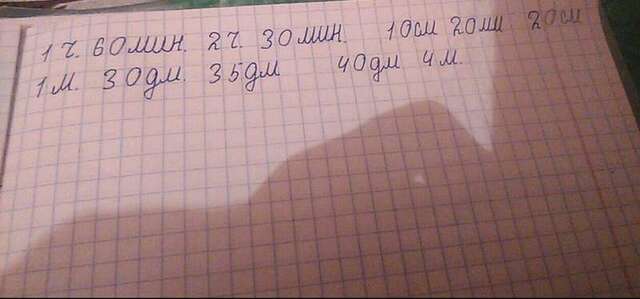 1 ч. 60 мин. 2 ч. 30 мин. 10 см 20 мм 20 см
1 м. 30 дм. 35 дм 40 дм 4 м.